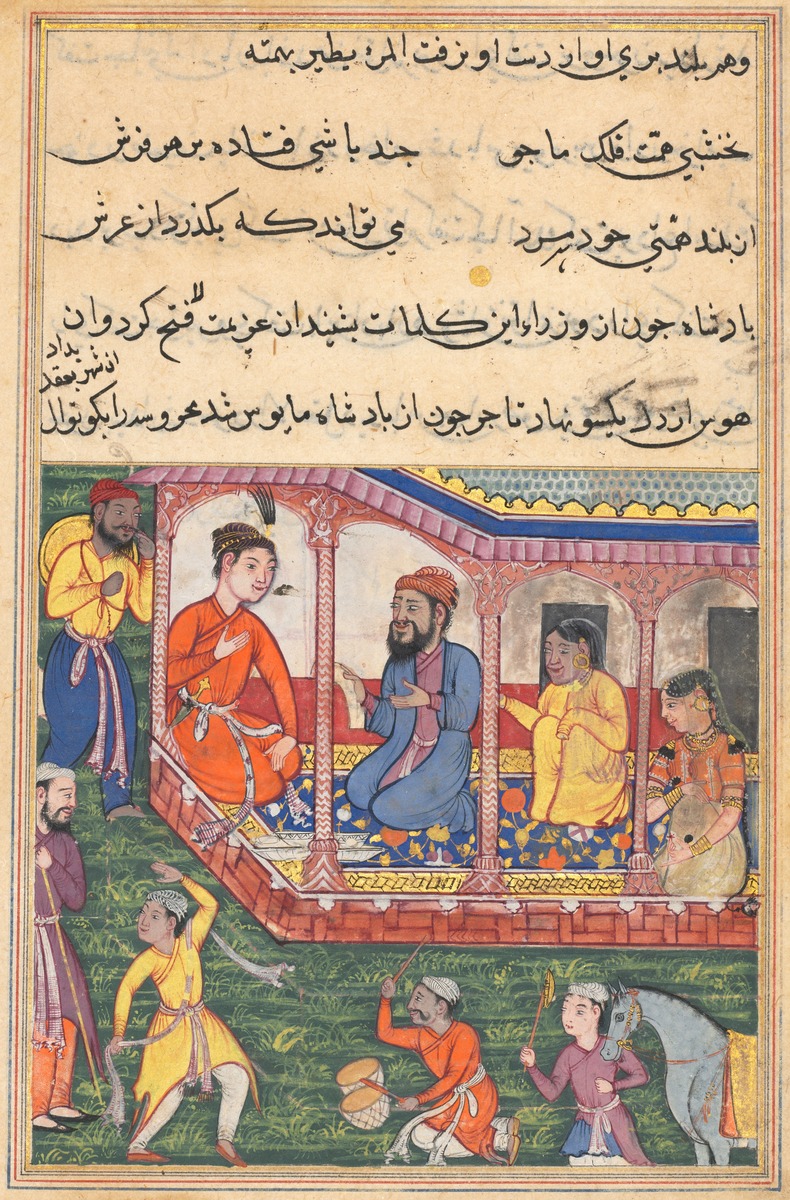 وهم بلند پري او از دست او نرفت المرء يطير بهمته
نخشبي همّت فلک ما جو جند باشي فتاده بر هر فرش
از بلند همّتي خود هر مرد مي تواند که بکذرد از عرش
بادشاه جون از وزراء اين کلمات بشنيد ان عزيمت لا فتح کرد و ان
هوس از دل يکسو نهاد تاجر جون از بادشاه مايوس شد محروسه را بکوتوال
ان شهر بعقد
بداد